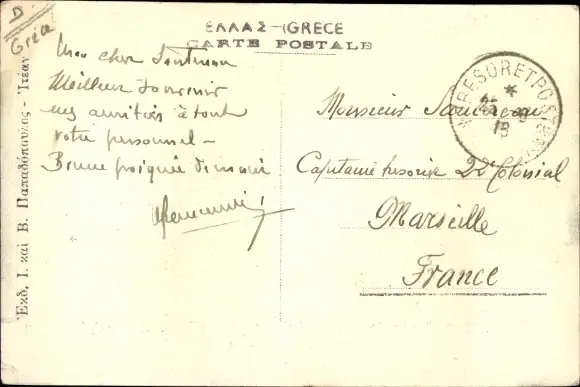 D
Grèce
ΕΛΛΑΣ - GRECE
CARTE POSTALE
Mon cher
Meilleur souvenir
mes amitiés à tout
votre personnel -
Bonne poignée de main
TRESOR ET POSTES
*
18
Monsieur
Capitaine trésorier 22e Colonial
Marseille
France
Ἐκδ. Ι. καὶ Β. Παπαδόπουλος - Ἰτέαν